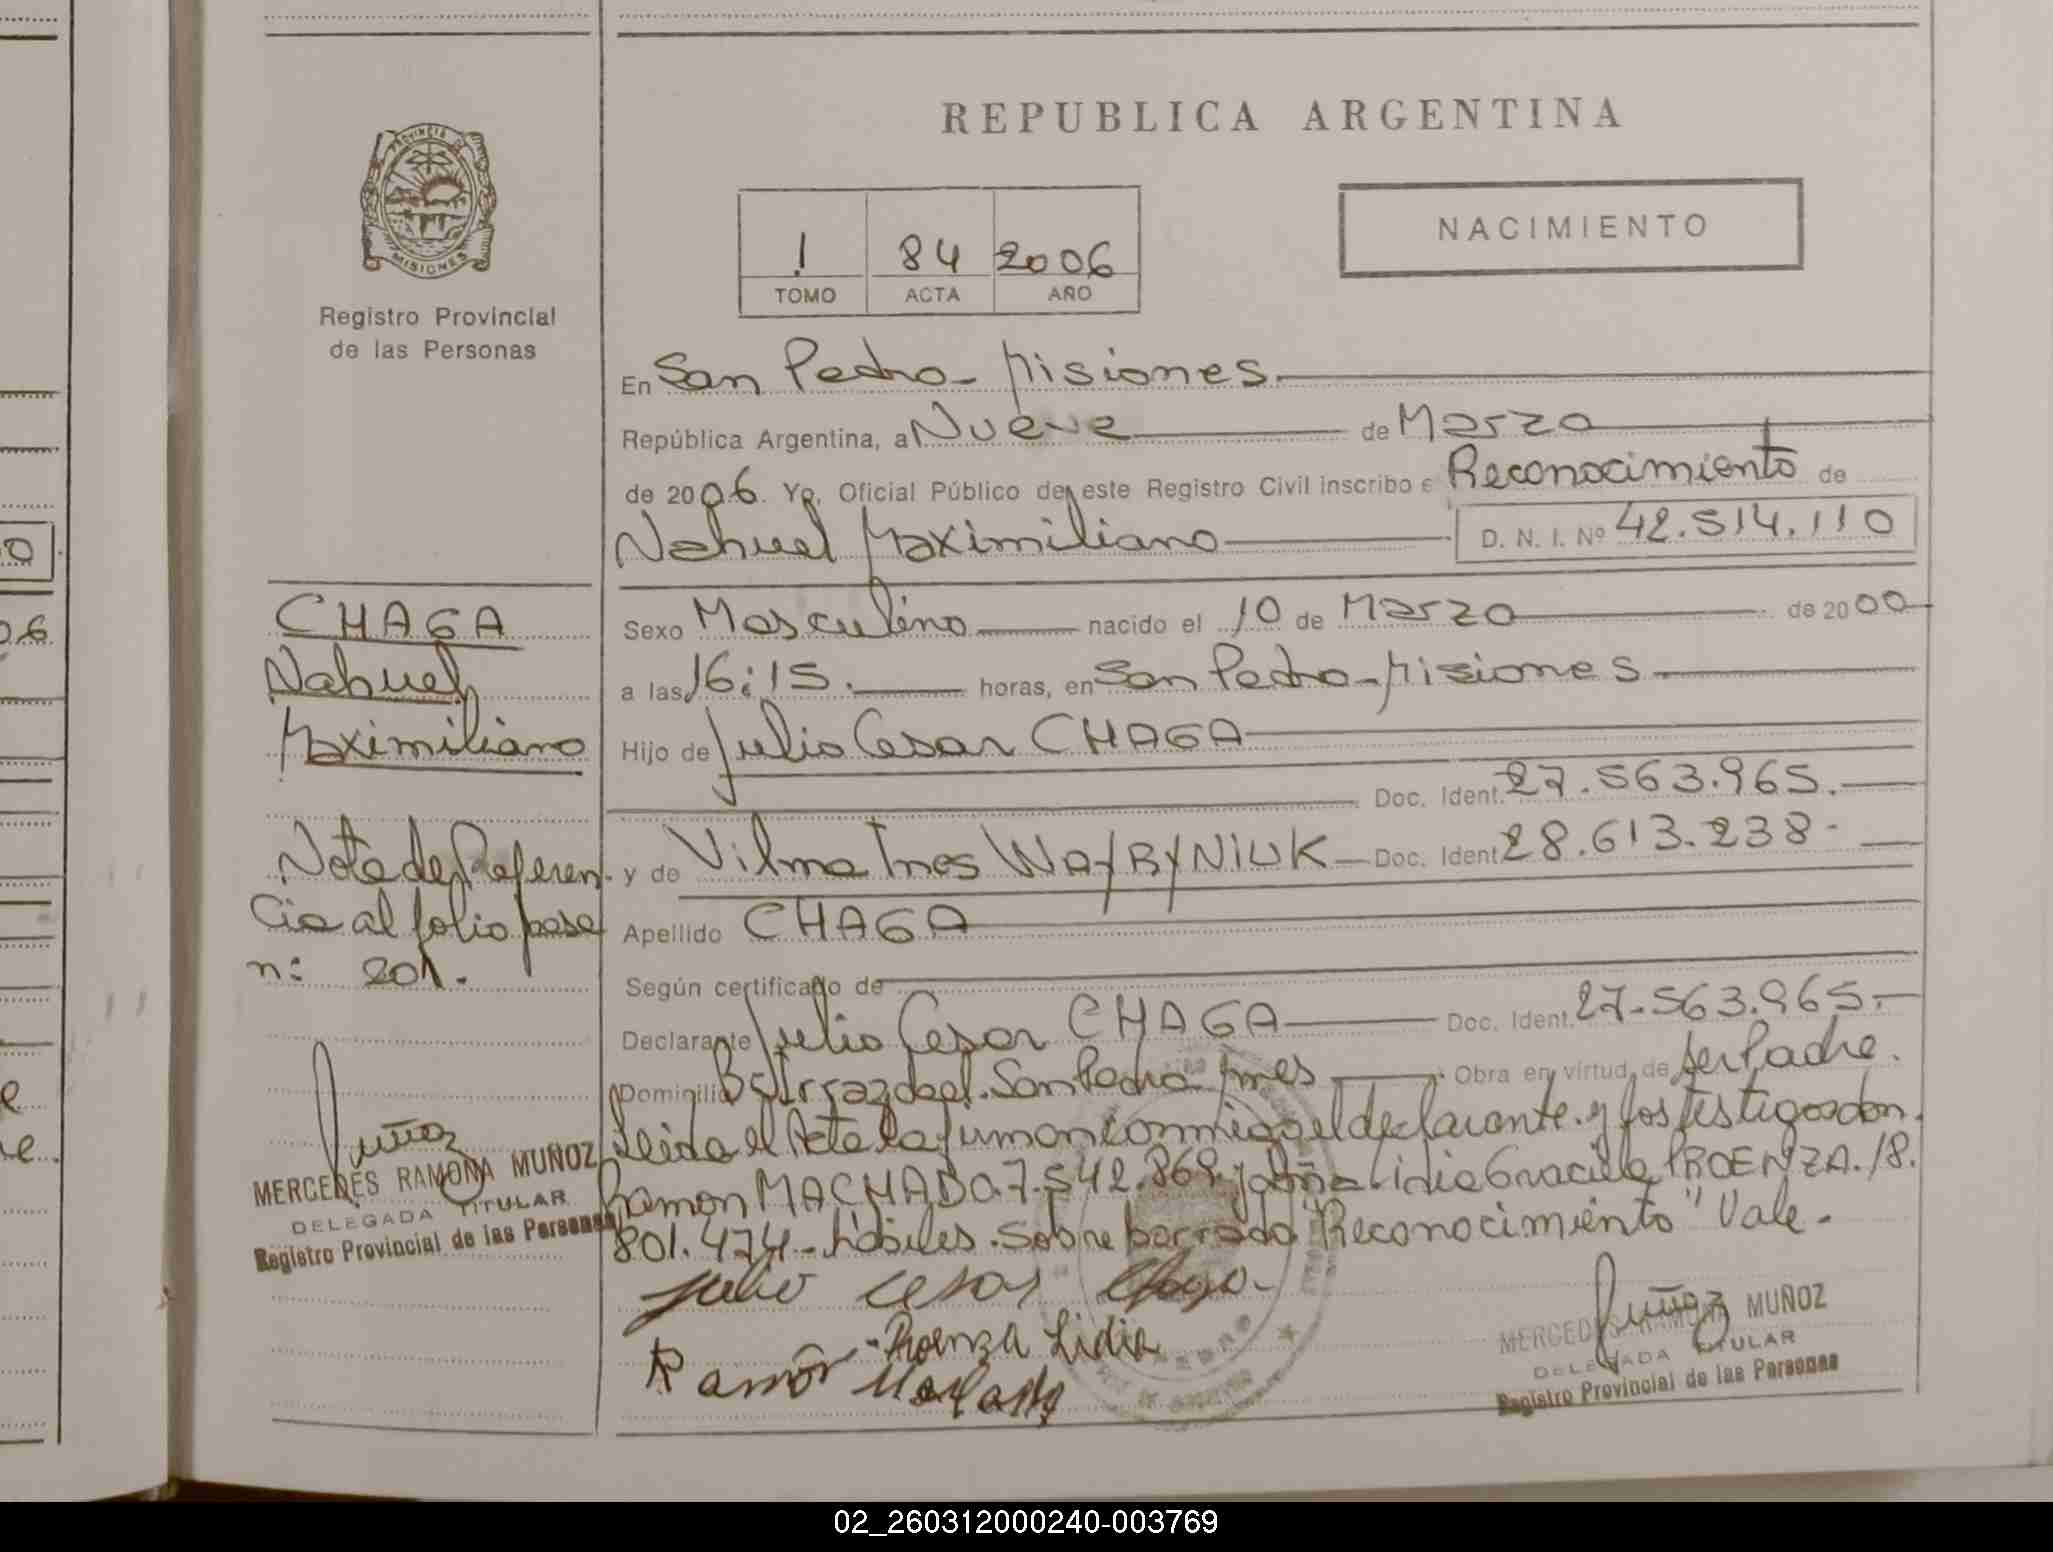 REPUBLICA ARGENTINA
PROVINCIA DE
MISIONES
Registro Provincial
de las Personas
1 84 2006
TOMO ACTA AÑO
NACIMIENTO
En San Pedro - Misiones.
República Argentina, a Nueve de Marzo
de 2006. Yo, Oficial Público de este Registro Civil inscribo e Reconocimiento de
Nahuel Maximiliano D. N. I. Nº 42.514.110
Sexo Masculino nacido el 10 de Marzo de 2000
a las 16:15. horas, en San Pedro - Misiones
Hijo de Julio Cesar CHAGA
Doc. Ident. 27.563.965.
y de Vilma Ines WAYBYNIUK Doc. Ident. 28.613.238-
Apellido CHAGA
Según certificado de
Declarante Julio Cesar CHAGA Doc. Ident. 27.563.965.-
Domicilio Bº Irrazabal. San Pedro Mnes Obra en virtud de ser Padre.
Leida el Acta la firman conmigo el declarante. y los testigos don.
Ramon MACHADO.7.542.869. y doña Lidia Graciela PROENZA./8.
801.474- hábiles. Sobre borrado "Reconocimiento" Vale.
Julio Cesar Chaga.
Proenza Lidia
Ramón Machado
Muñoz
MERCEDES RAMONA MUÑOZ
DELEGADA TITULAR
Registro Provincial de las Personas
CHAGA
Nahuel
Maximiliano
Nota de Referen.
cia al folio pase
n: 201.
Muñoz
MERCEDES RAMONA MUÑOZ
DELEGADA TITULAR
Registro Provincial de las Personas
02_260312000240-003769